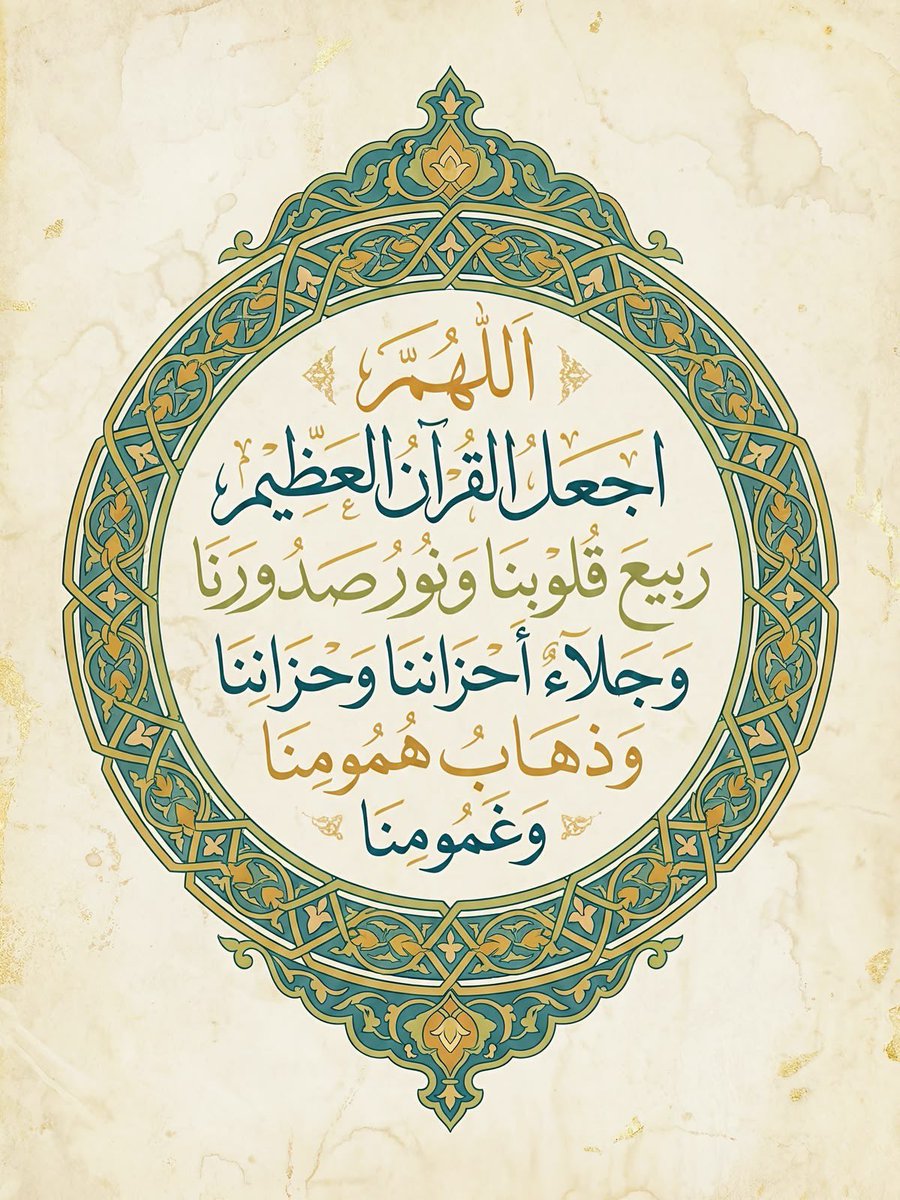 اَللّٰهُمَّ
اجَعَلُ القُرْآنُ العَظِيمْ
رَبِيعَ قُلوْبنَا وَنُورُ صَدُورَنَا
وَجَلآءٌ أَحْزَاننَا وَحْزَانِننَا
وَذهَابُ هُمُومِنَا
وَغَمُومِنَا